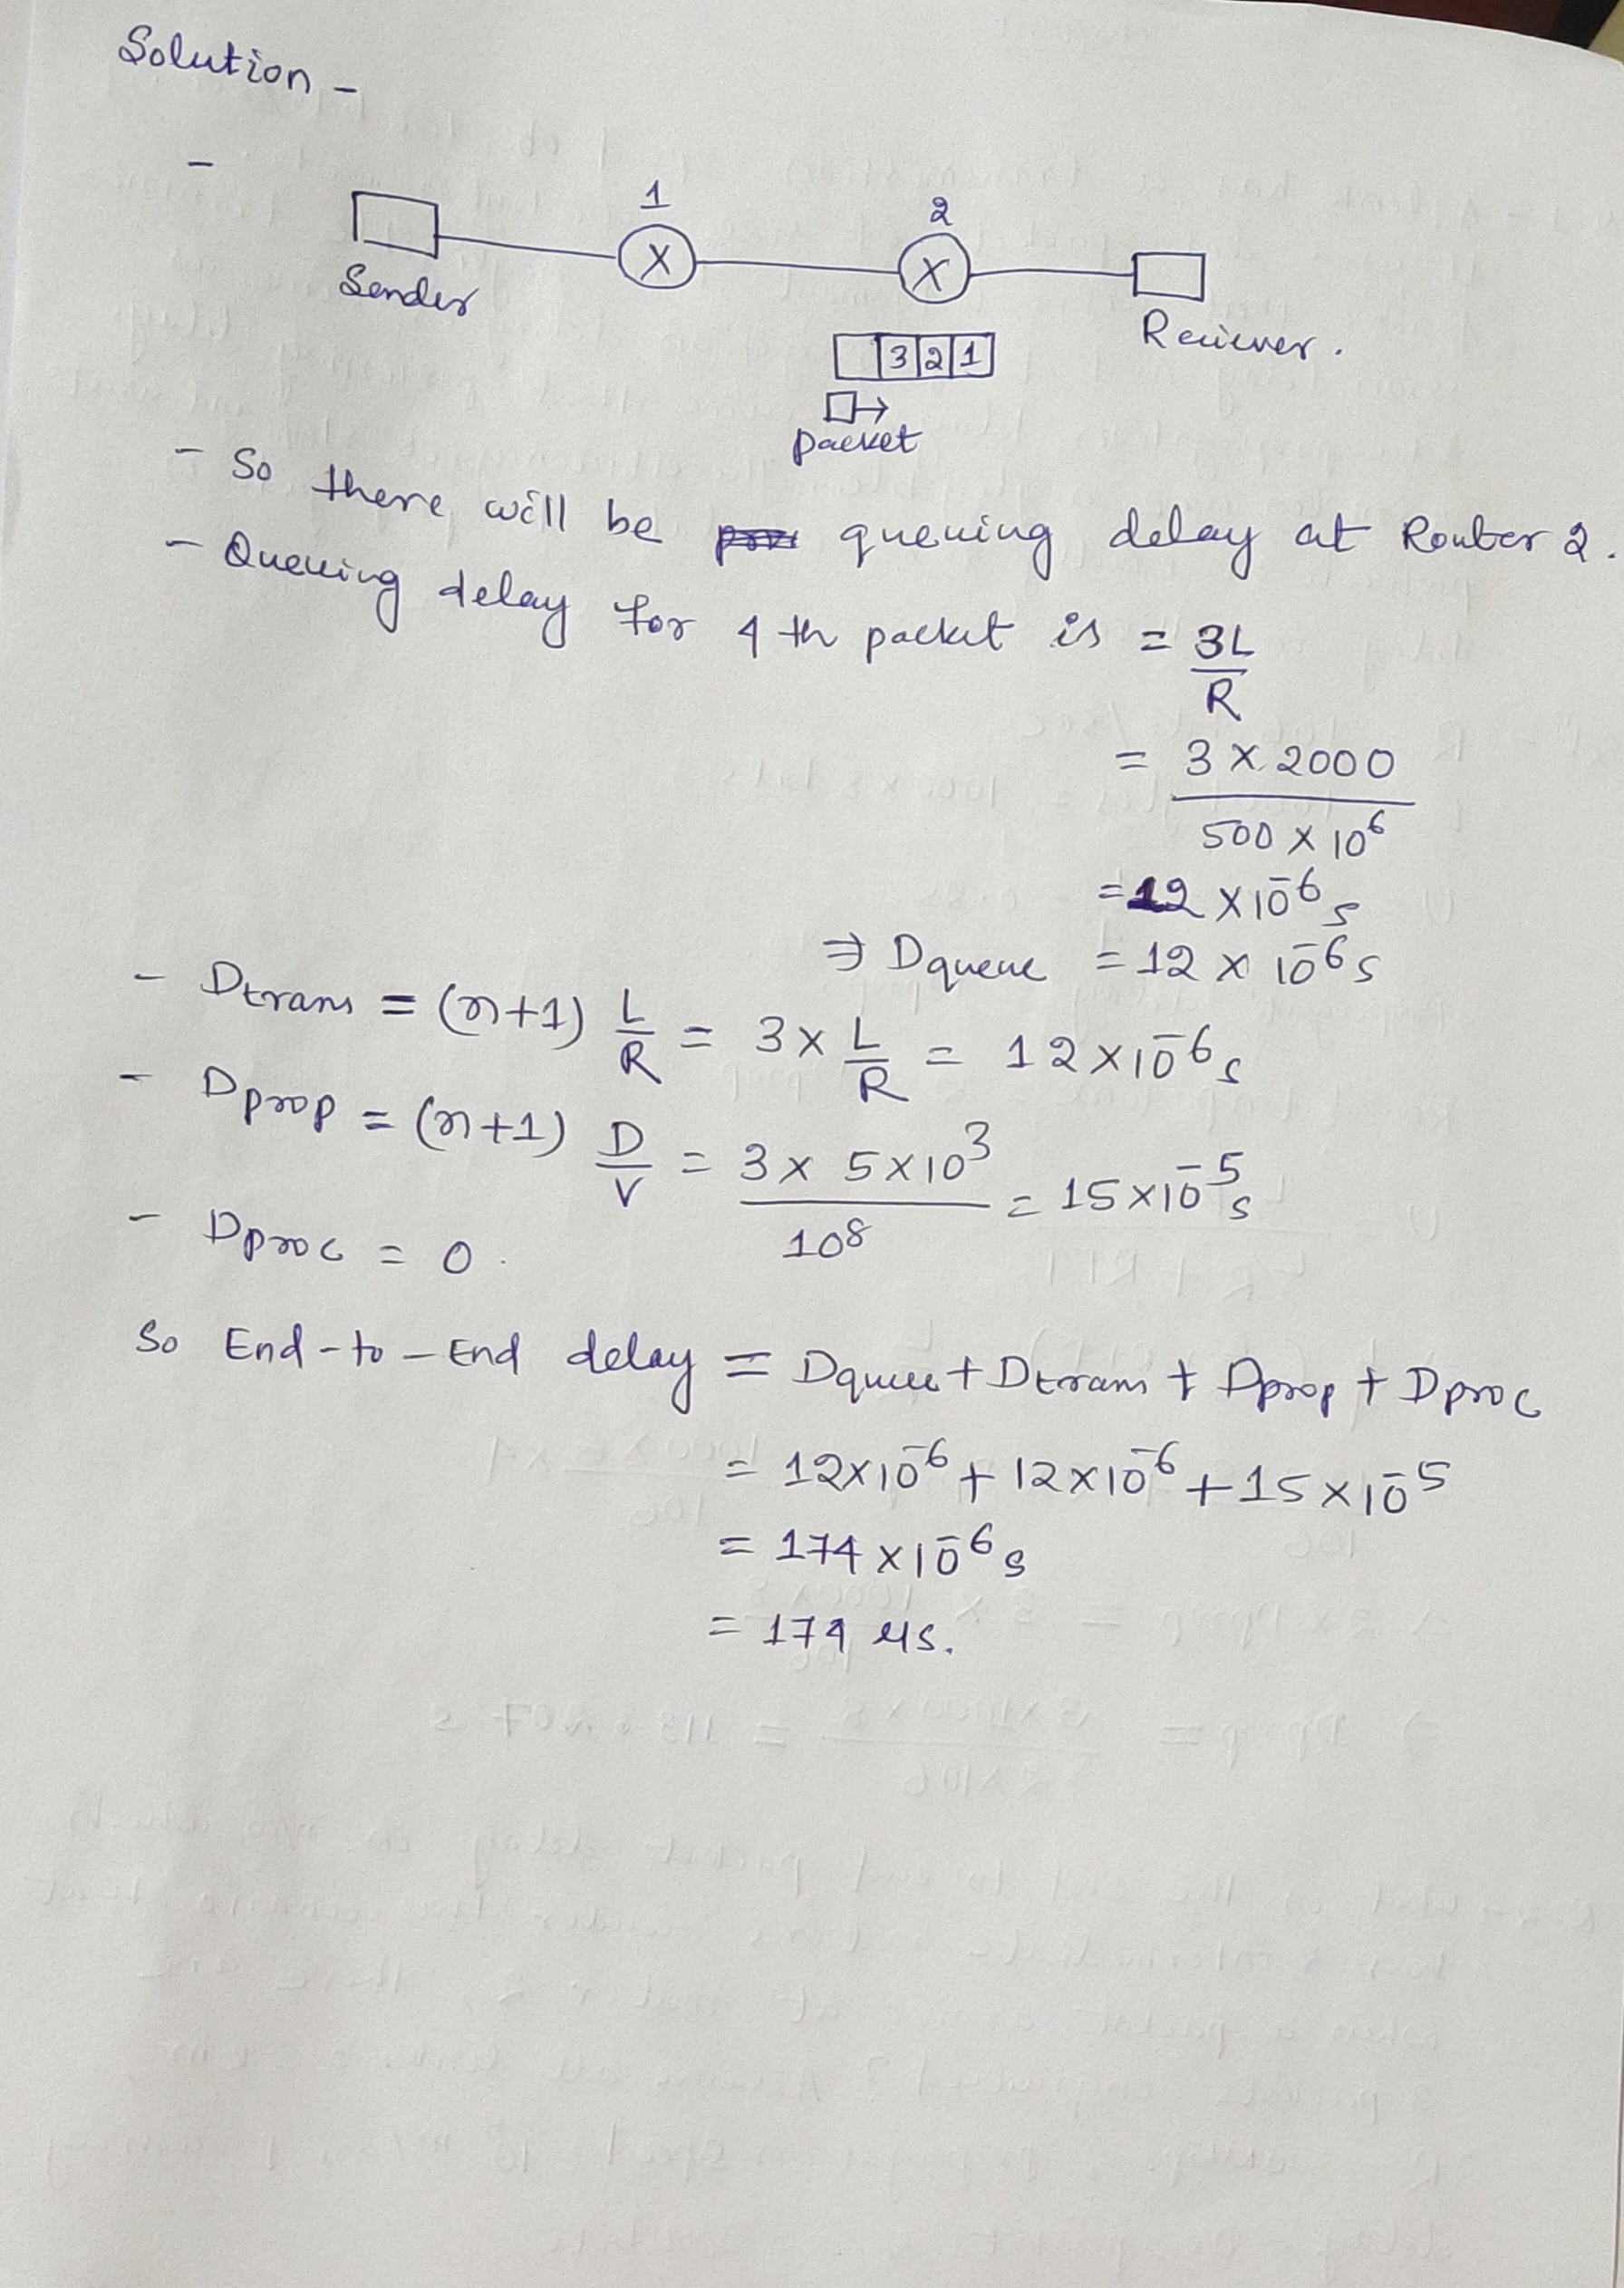 Solution -
-
1
2
X
X
Sender
Reciever.
3 2 1
packet
- So there will be queuing delay at Router 2.
- Queuing delay for 4 th packet is = 3L/R
= 3 X 2000 / 500 X 10⁶
= 12 X 10⁻⁶ s
⇒ Dqueue = 12 X 10⁻⁶ s
- Dtrans = (n+1) L/R = 3 X L/R = 12 X 10⁻⁶ s
- Dprop = (n+1) D/V = 3 X 5 X 10³ / 10⁸ = 15 X 10⁻⁵ s
- Dproc = 0.
So End-to-End delay = Dqueue + Dtrans + Dprop + Dproc
= 12 X 10⁻⁶ + 12 X 10⁻⁶ + 15 X 10⁻⁵
= 174 X 10⁻⁶ s
= 174 μs.